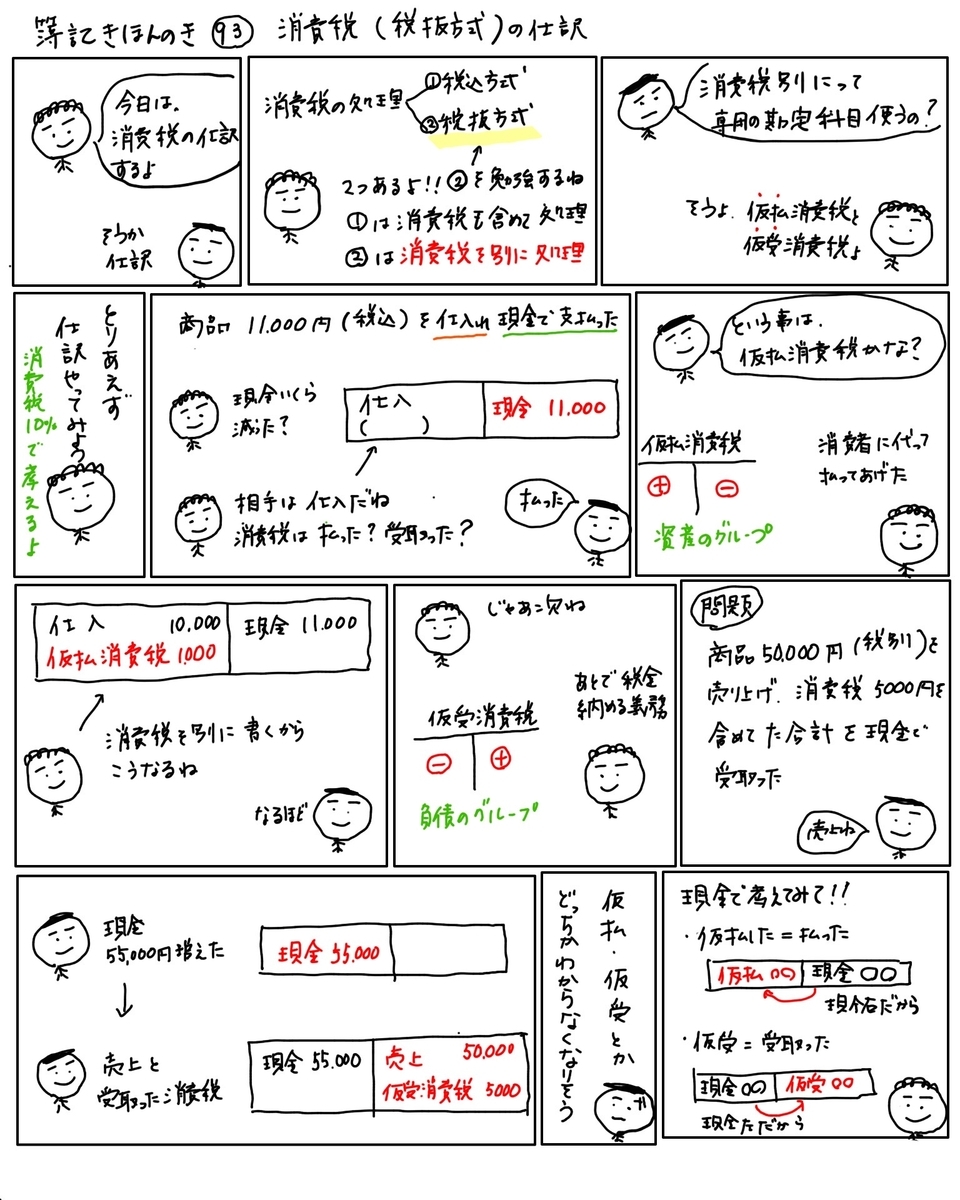 簿記きほんのき 93 消費税(税抜方式)の仕訳
今日は、
消費税の仕訳
するよ
そうか
仕訳
消費税の処理
①税込方式
②税抜方式
2つあるよ!!②を勉強するね
①は消費税も含めて処理
②は消費税を別に処理
消費税別にって
専用の勘定科目使うの?
そうよ、仮払消費税と
仮受消費税よ
とりあえず
仕訳やってみよう
消費税10%で考えるよ
商品 11.000円(税込)を仕入れ 現金で支払った
現金いくら
減った?
仕入
( )
現金 11.000
相手は仕入だね
消費税は払った?受取った?
払った
という事は、
仮払消費税かな?
仮払消費税
⊕ ⊖
資産のグループ
消費者に代って
払ってあげた
仕入 10.000
仮払消費税 1.000
現金 11.000
消費税を別に書くから
こうなるね
なるほど
じゃあ次ね
仮受消費税
⊖ ⊕
負債のグループ
あとで税金
納める義務
問題
商品50.000円(税別)を
売り上げ、消費税5000円を
含めた合計を現金で
受取った
売上ね
現金
55.000円増えた
現金 55.000
売上と
受取った消費税
現金 55.000
売上 50.000
仮受消費税 5000
仮払・仮受とか
どっちかわからなくなりそう
現金で考えてみて!!
・仮払した=払った
仮払〇〇 現金〇〇
現金右だから
・仮受=受取った
現金〇〇 仮受〇〇
現金左だから